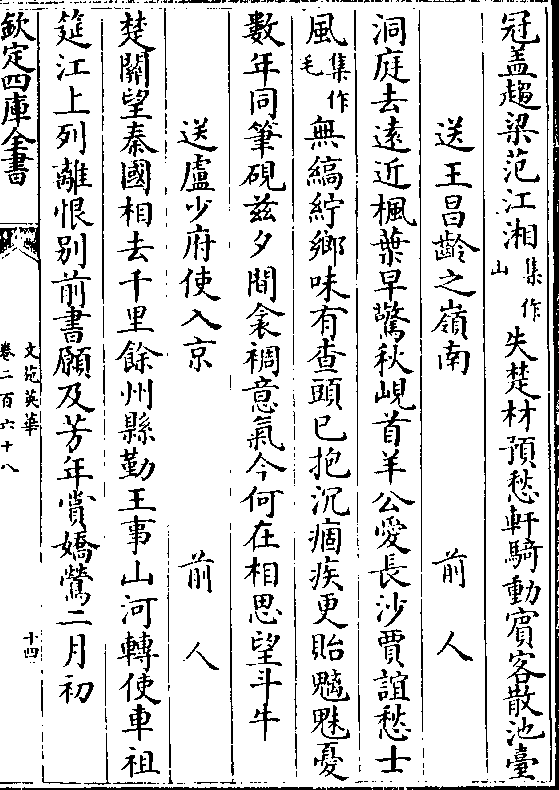 冠盖趨梁范江湘集作山失楚材預愁軒騎動賓客散池臺
送王昌齡之嶺南 前人
洞庭去遠近楓葉早驚秋峴首羊公愛長沙賈誼愁士
風集作毛無縞紵鄉味有查頭已抱沉痼疾更貽魑魅憂
數年同筆硯兹夕間衾裯意氣今何在相思望斗牛
送盧少府使入京 前人
楚關望秦國相去千里餘州縣勤王事山河轉使車祖
筵江上列離恨别前書願及芳年賞嬌鶯二月初
欽定四庫全書
文苑英華
卷二百六十八
十四